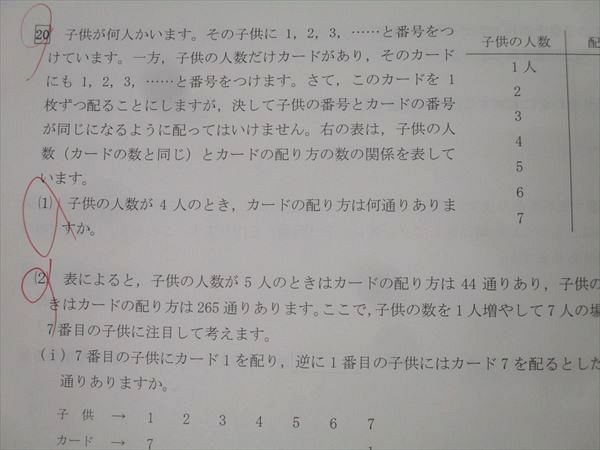 20 子供が何人かいます。その子供に 1, 2, 3, ……と番号をつ
けています。一方, 子供の人数だけカードがあり, そのカード
にも 1, 2, 3, ……と番号をつけます。さて, このカードを 1
枚ずつ配ることにしますが, 決して子供の番号とカードの番号
が同じになるように配ってはいけません。右の表は, 子供の人
数（カードの数と同じ）とカードの配り方の数の関係を表して
います。
子供の人数 配
1人
2
3
4
5
6
7
(1) 子供の人数が 4 人のとき, カードの配り方は何通りありま
すか。
(2) 表によると, 子供の人数が 5 人のときはカードの配り方は 44 通りあり, 子供の
きはカードの配り方は 265 通りあります。ここで, 子供の数を 1 人増やして 7 人の場
7 番目の子供に注目して考えます。
(i) 7 番目の子供にカード 1 を配り, 逆に 1 番目の子供にはカード 7 を配るとした
通りありますか。
子 供 → 1 2 3 4 5 6 7
カード → 7 1